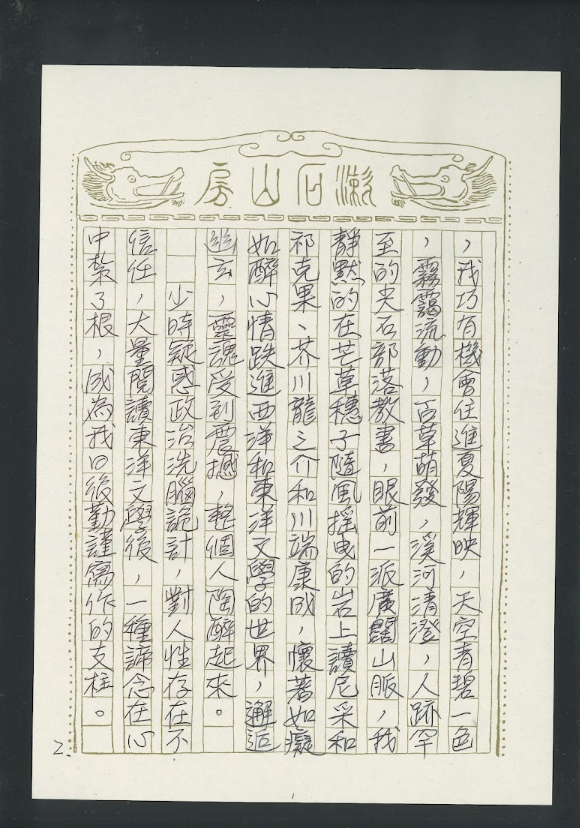 漱石山房
，我巧有機會住進夏陽輝映，天空青碧一色
，霧靄流動，百草萌發，溪河清澄，人跡罕
至的尖石部落教書，眼前一派廣闊山脈，我
靜默的在芒草穗子隨風搖曳的岩上讀尼采和
祁克果、芥川龍之介和川端康成，懷著如癡
如醉心情跌進西洋和東洋文學的世界，邂逅
幽玄，靈魂受到震撼，整個人陶醉起來。
少時疑惑政治洗腦詭計，對人性存在不
信任，大量閱讀東洋文學後，一種諦念在心
中紮了根，成為我日後勤謹寫作的支柱。
2